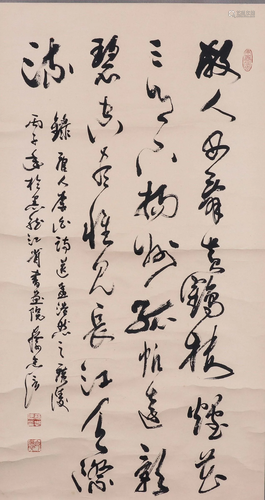 故人西辭黃鶴樓煙花
三月下揚州孤帆遠影
碧空盡惟見長江天際
流
錄唐人李白詩送孟浩然之廣陵
丙子於黑龍江省書畫院